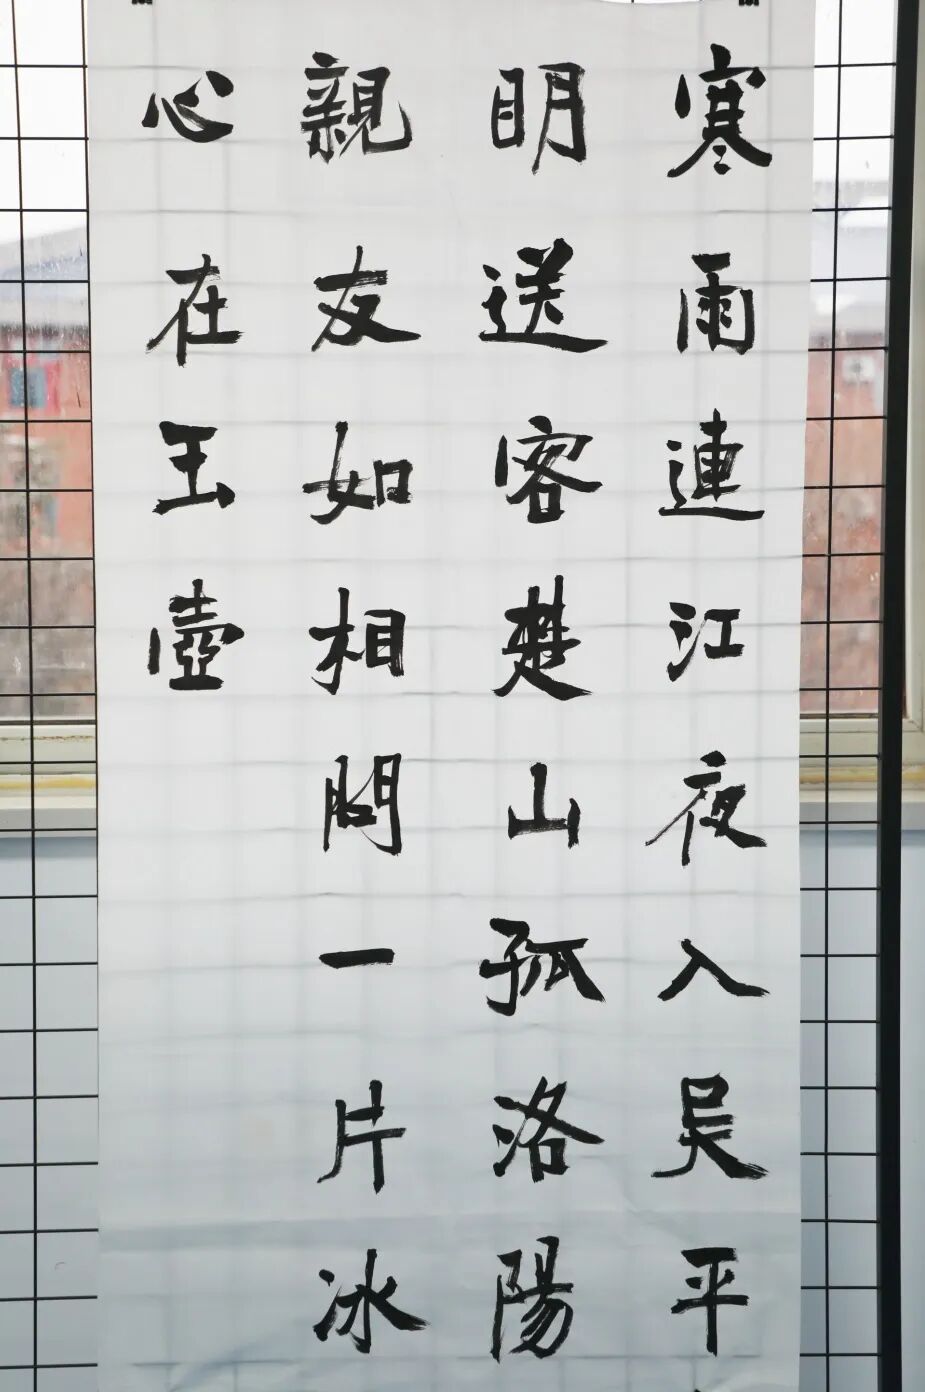 寒雨連江夜入吳平
明送客楚山孤洛陽
親友如相問一片冰
心在玉壺